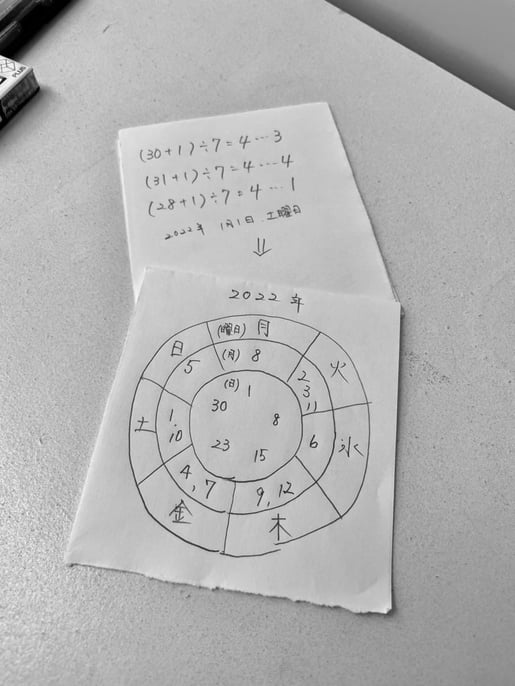 PLUS
(30+1)÷7=4…3
(31+1)÷7=4…4
(28+1)÷7=4…1
2022年 1月1日 土曜日
⇓
2022年
(曜日) 月
火
水
木
金
土
日
(月) 8
2 3 11
6
9, 12
4, 7
1, 10
5
(日) 1
8
15
23
30